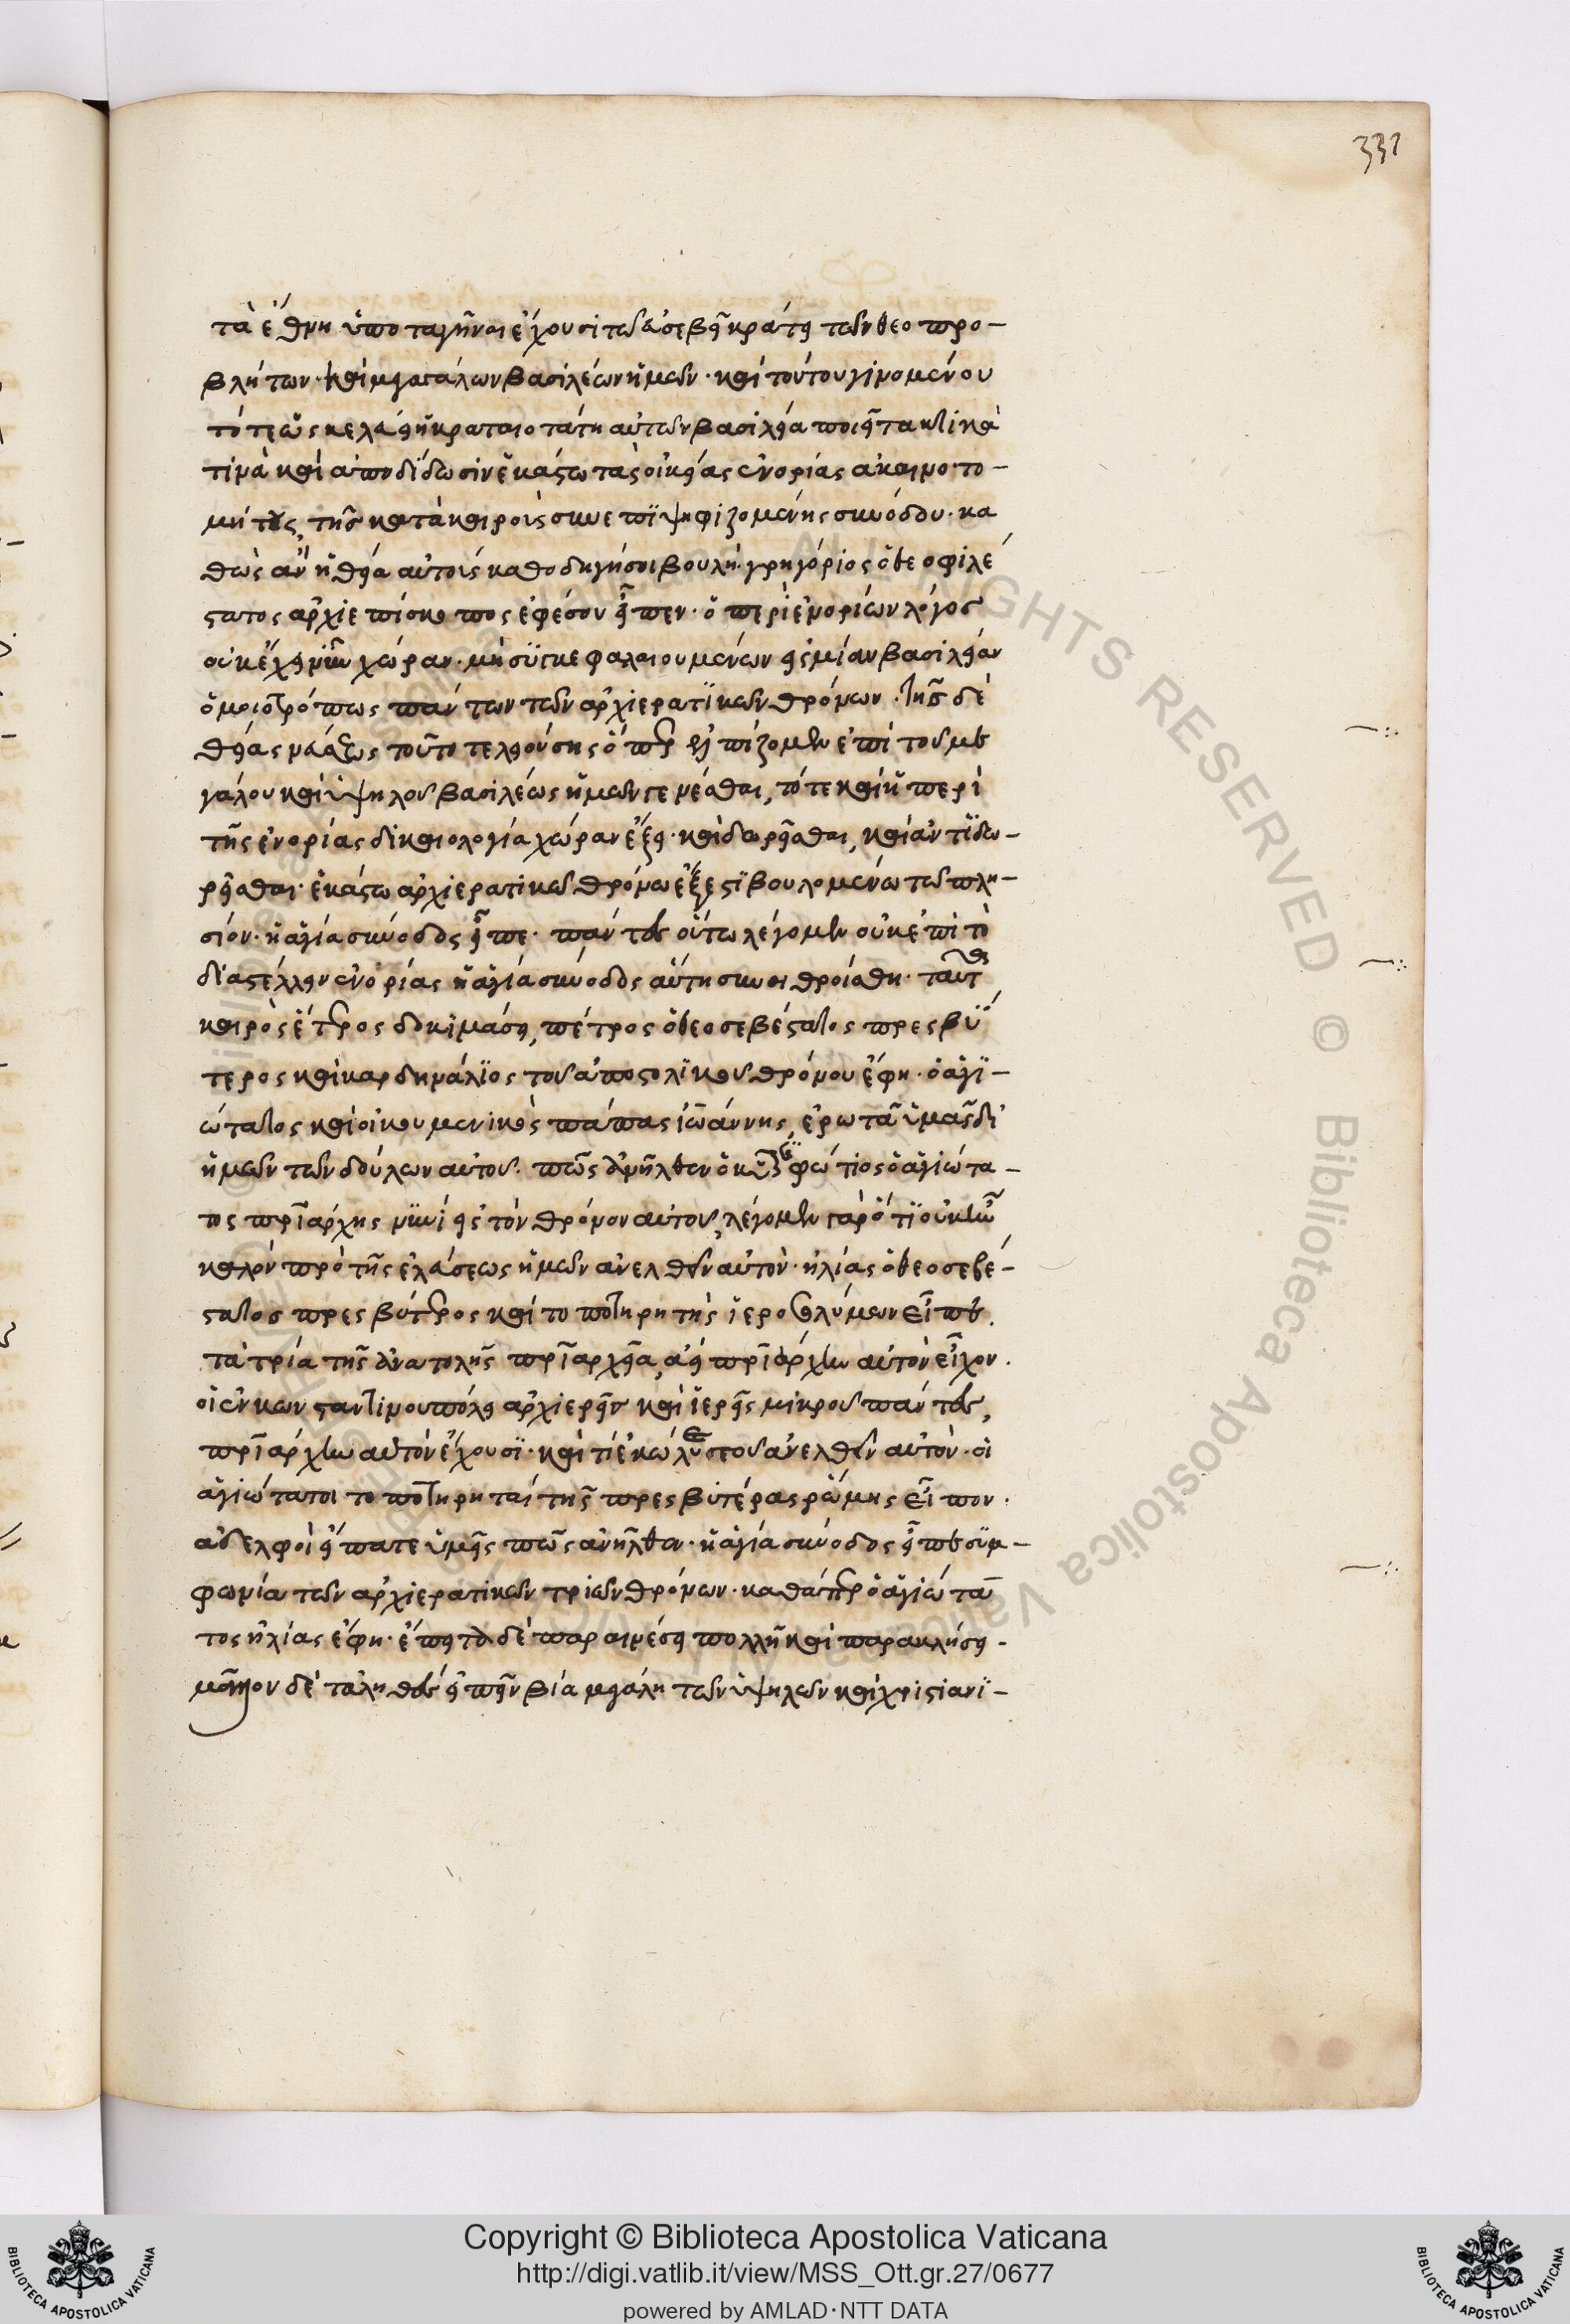 331
τὰ ἔθνη ὑποταγῆναι ἔχουσι τῶ εὐσεβεῖ κράτει τῶν θεοπρο-
βλήτων· καὶ μεγαλάλων βασιλέων ἡμῶν· καὶ τούτου γινομένου
τότε ὡς κελεύει ἡ κραταιοτάτη αὐτῶν βασιλεία ποιεῖται
τινὰ καὶ ἀποδίδωσιν ἑκάστω τὰς οἰκείας ἐνορίας ἀκαινοτο-
μήτους, τῆς κατὰ καιροὺς συνεπϊψηφιζομένης συνόδου. κα
θὼς ἂν ἡ θεία αὐτοὺς καθοδηγήσοι βουλή. γρηγόριος ὁ θεοφιλέ
στατος ἀρχιεπίσκοπος ἐφέσου εἶπεν· ὁ περὶ ἐνοριῶν λόγος
οὐκ ἔχει νῦν χώραν· μὴ συγκεφαλαιουμένων εἰς μίαν βασιλείαν
ὁμοιοτρόπως πάντων τῶν ἀρχιερατϊκῶν θρόνων. τῆς δὲ
θείας νεύσεως τοῦτο τελειούσης ὅπερ ἐλπίζομεν ἐπὶ τοῦ με
γάλου καὶ ὑψηλοῦ βασιλέως ἡμῶν γενέσθαι, τότε καὶ ἡ περὶ
τῆς ἐνορίας δικαιολογία χώραν ἕξει· καὶ δωρεῖσθαι, καὶ ἀντϊδω-
ρεῖσθαι· ἑκάστω ἀρχιερατικῶ θρόνω ἔξεστϊ βουλομένω τῶ πλη-
σίον· ἡ ἁγία σύνοδος εἶπε· πάντες οὕτω λέγομεν οὐκ ἐπὶ τὸ
διαστέλλειν ἐνορίας ἡ ἁγία σύνοδος αὕτη συνηθροίσθη· ταῦτ
καιρὸς ἕτερος δοκιμάσει, πέτρος ὁ θεοσεβέστατος πρεσβύ
τερος καὶ καρδηνάλϊος τοῦ ἀποστολϊκοῦ θρόνου ἔφη· ὁ ἁγϊ-
ώτατος καὶ οἰκουμενικὸς πάπας ἰωάννης, ἐρωτᾶ ὑμᾶς δι
ἡμῶν τῶν δούλων αὐτοῦ· πῶς ἀνῆλθεν ὁ κῦρις φώτιος ὁ ἁγιώτα-
τος πριάρχης νυνὶ εἰς τὸν θρόνον αὐτοῦ, λέγομεν γὰρ ὅτϊ οὐκ ἦν
καλὸν πρὸ τῆς ἐλεύσεως ἡμῶν ἀνελθεῖν αὐτόν· ἡλίας ὁ θεοσεβέ-
στατος πρεσβύτερος καὶ τοποτηρητὴς ἱεροσολύμων εἶπε.
τὰ τρία τῆς ἀνατολῆς πριαρχεῖα, ἀεὶ πριάρχην αὐτὸν εἶχον.
οἱ ἐν κωνσταντινουπόλει ἀρχιερεῖς καὶ ἱερεῖς μικροῦ πάντες,
πριάρχην αὐτὸν ἔχουσϊ· καὶ τί ἐκώλυσε τοῦ ἀνελθεῖν αὐτόν· οἱ
ἁγιώτατοι τοποτηρηταὶ τῆς πρεσβυτέρας ῥώμης εἶπον.
ἀδελφοὶ εἴπατε ὑμεῖς πῶς ἀνῆλθεν· ἡ ἁγία σύνοδος εἶπε συμ-
φωνία τῶν ἀρχιερατικῶν τριῶν θρόνων· καθάπερ ὁ ἁγιώτα
τος ἡλίας ἔφη· ἔπειτα δὲ παραινέσει πολλῆ καὶ παρακλήσει.
μᾶλλον δὲ τἀληθὲς εἰπεῖν βία μεγάλη τῶν ὑψηλῶν καὶ χριστιανϊ-
Copyright © Biblioteca Apostolica Vaticana
http://digi.vatlib.it/view/MSS_Ott.gr.27/0677
powered by AMLAD·NTT DATA